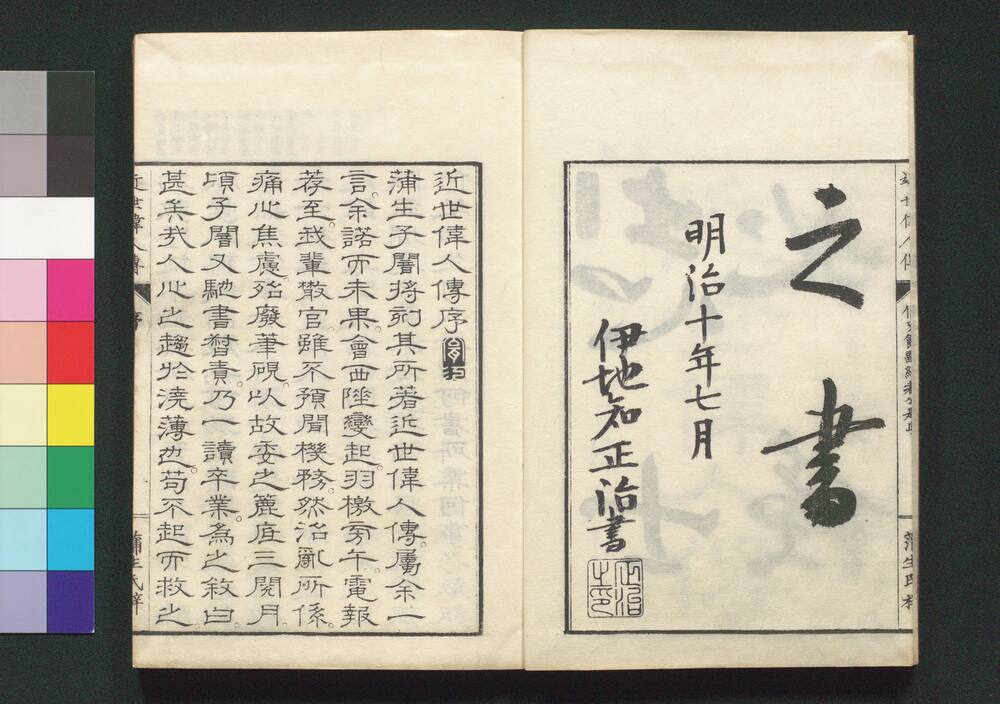 之書
明治十年七月
伊地知正治書
正治之印
近世偉人傳序
蒲生子闇将刻其所著近世偉人傳。屬余一
言。余諾而未果。會西陲變起。羽檄旁午。電報
荐至。我輩散官。雖不預聞機務。然治亂所係。
痛心焦慮。殆廢筆硯。以故委之簏底三閱月。
頃子闇又馳書督責。乃一讀卒業。為之敘曰。
甚矣哉人心之趨於澆薄也。苟不起而救之
近世偉人傳
序
蒲生氏梓